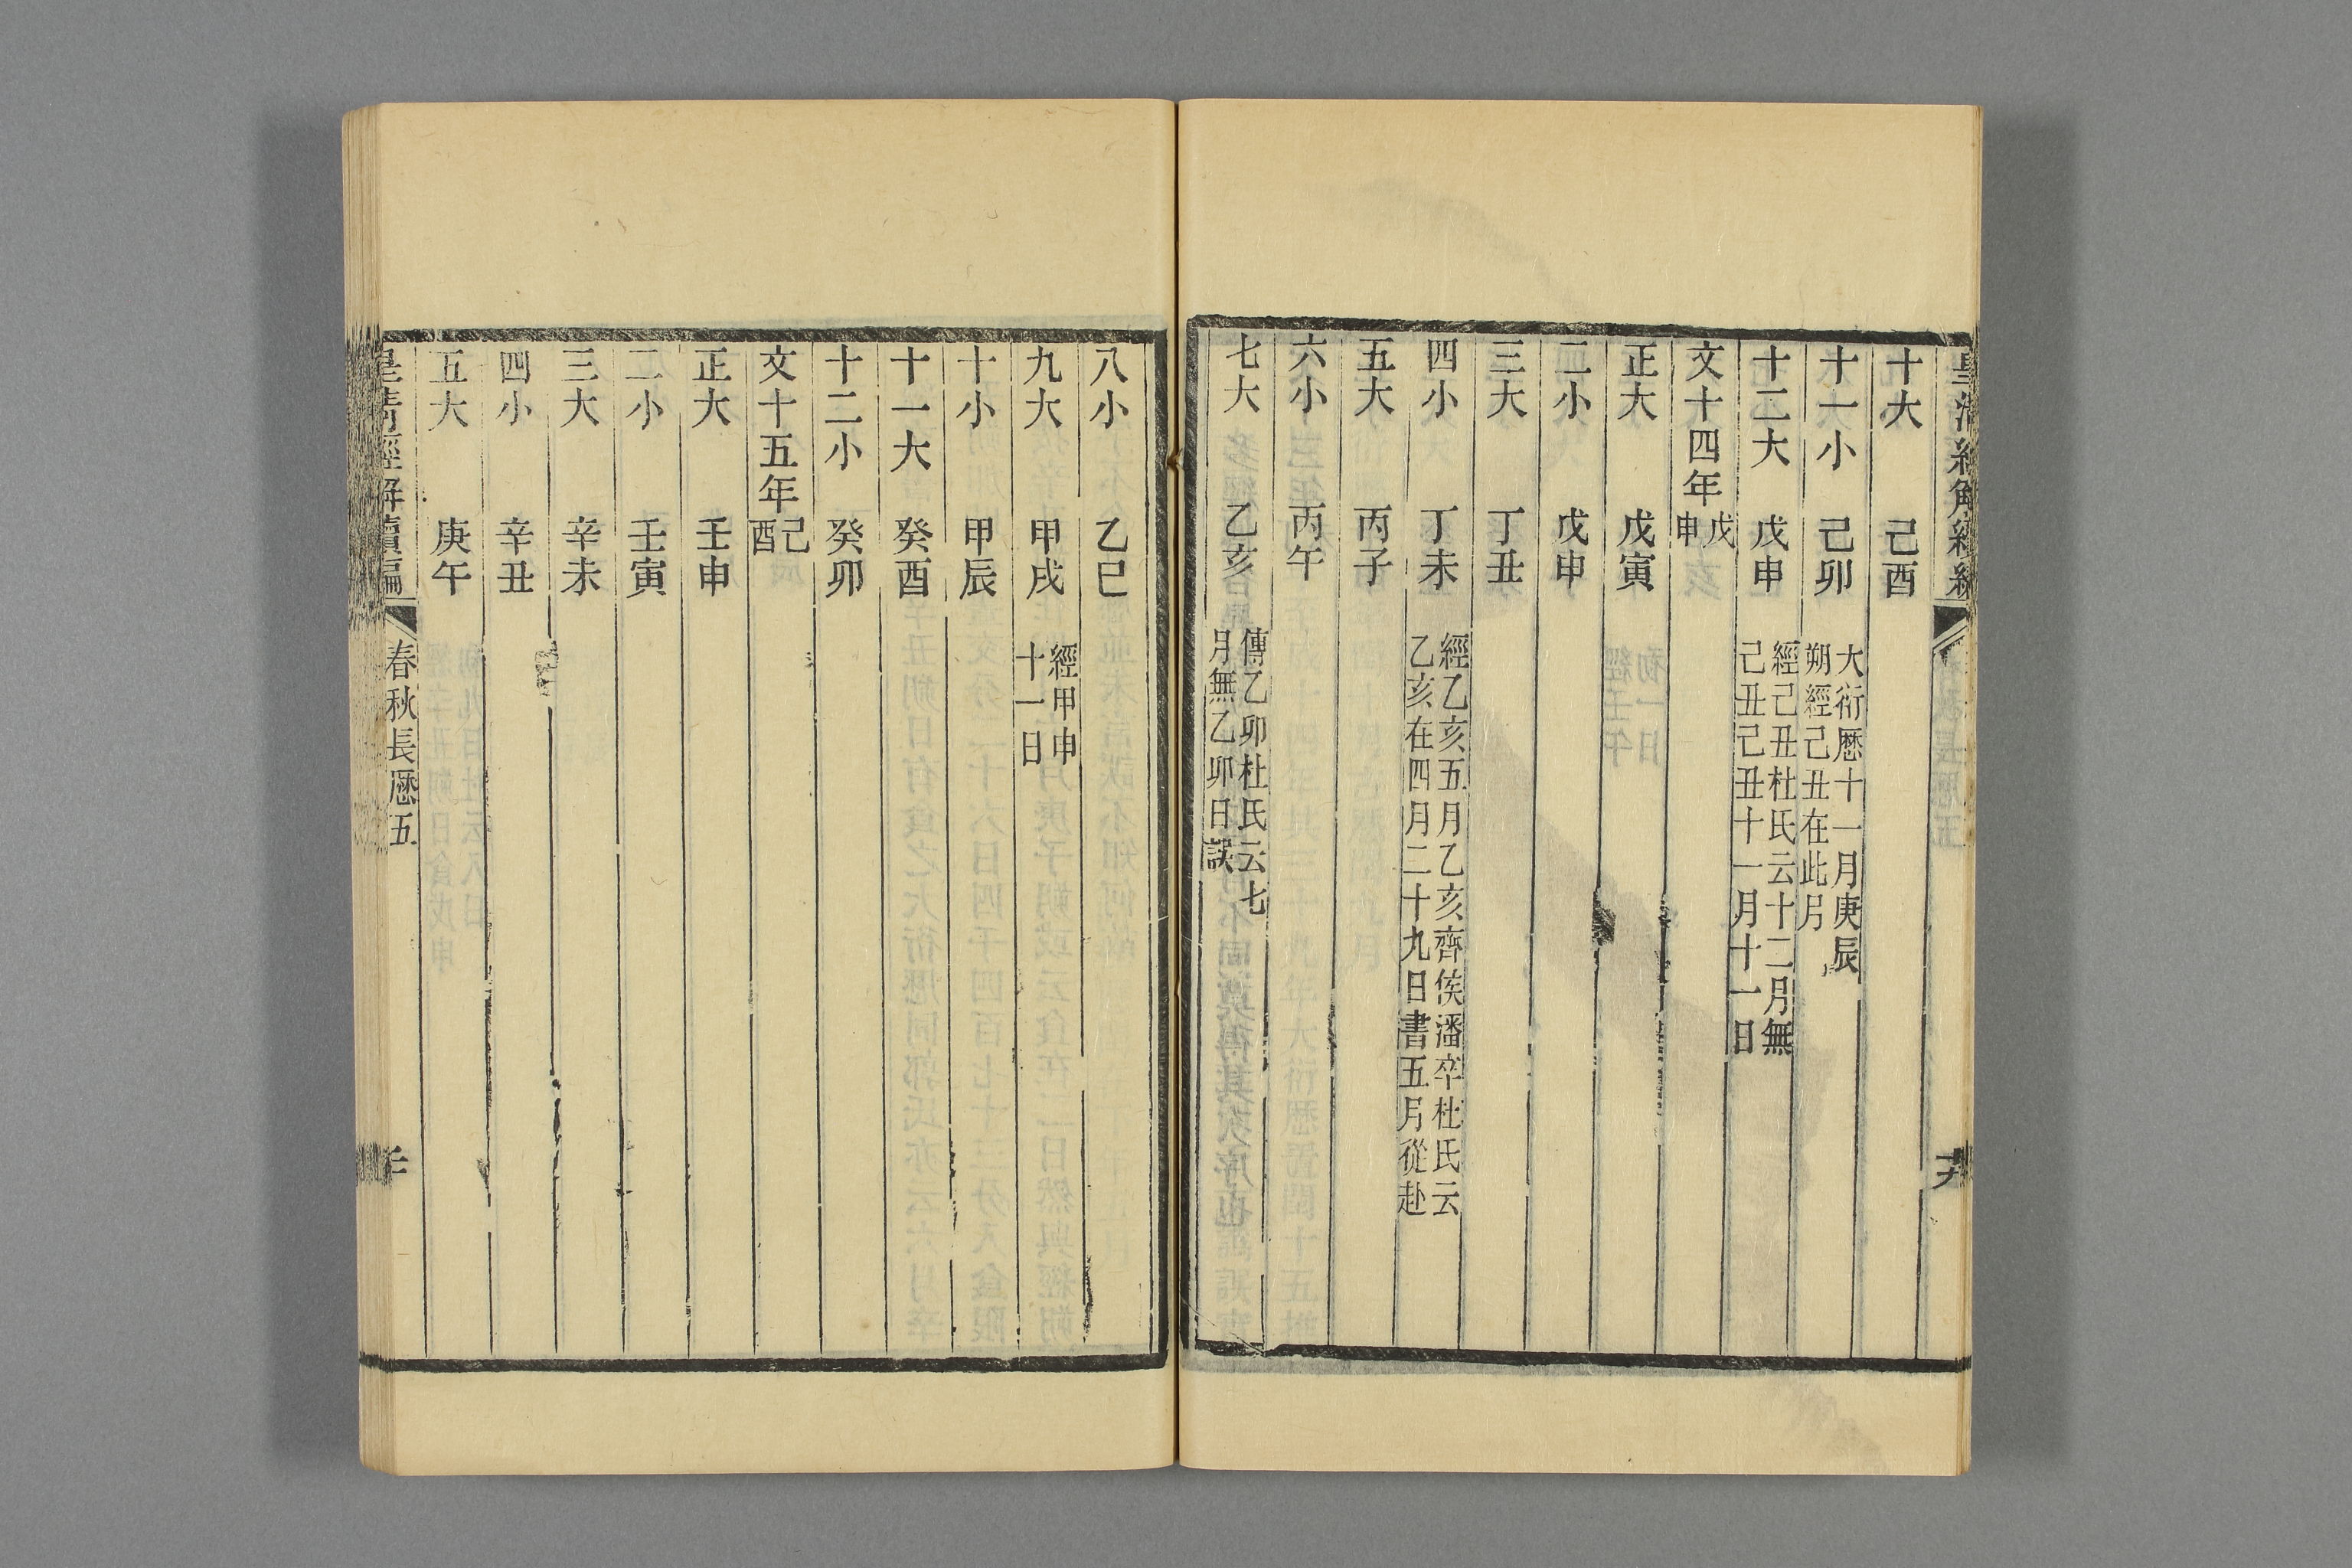 皇清經解續編
十大　己酉
十一小　己卯　大衍厯十一月庚辰
朔經己丑在此月
十二大　戊申　經己丑杜氏云十二月無
己丑己丑十一月十一日
文十四年戊
申
正大　戊寅
二小　戊申
三大　丁丑
四小　丁未　經乙亥五月乙亥齊侯潘卒杜氏云
乙亥在四月二十九日書五月從赴
五大　丙子
六小　丙午
七大　乙亥　傳乙卯杜氏云七
月無乙卯日誤
八小　乙巳
九大　甲戌　經甲申
十一日
十小　甲辰
十一大　癸酉
十二小　癸卯
文十五年己
酉
正大　壬申
二小　壬寅
三大　辛未
四小　辛丑
五大　庚午
皇清經解續編　春秋長厯五